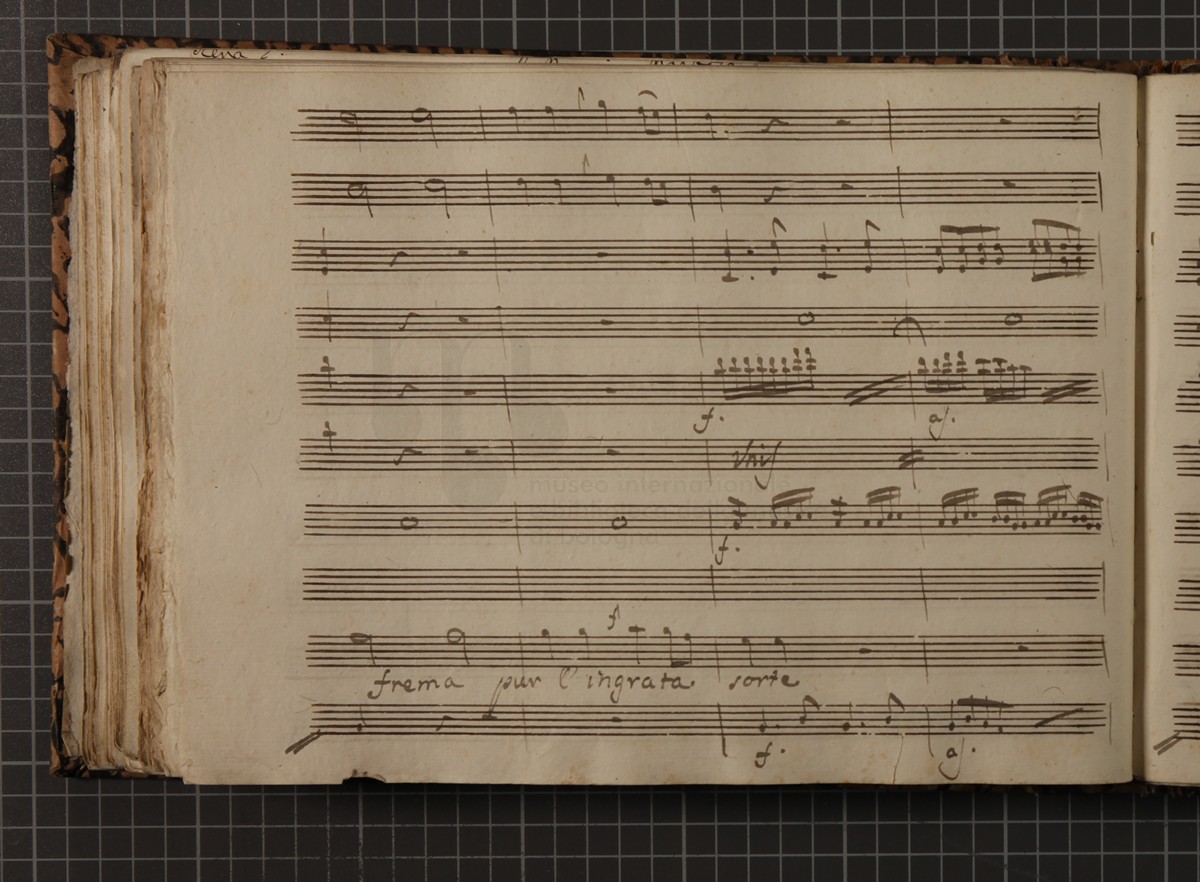 f. aſ.
Vniſ
museo internazionale
di bologna
f.
frema pur l'ingrata sorte
f. aſ.